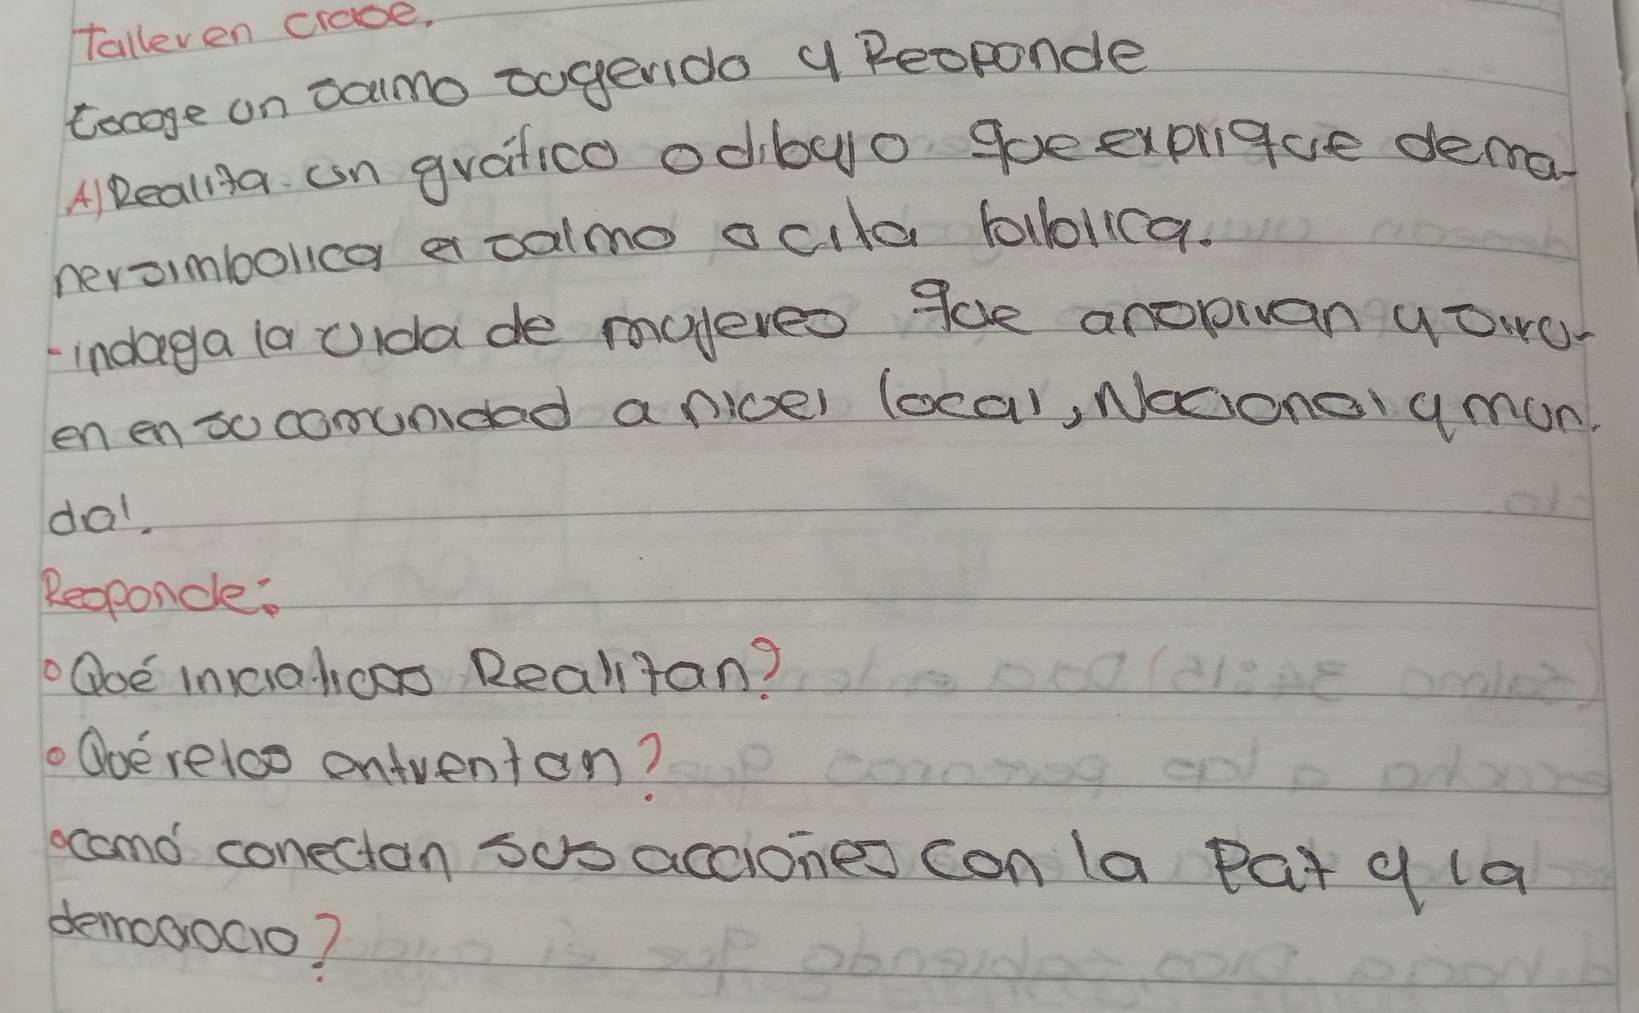 Taller en clase.
Escoge un salmo sugerido y Responde
A) Realiza un gráfico o dibujo que explique de ma-
nera simbolica el salmo o cita biblica.
- indaga la vida de mujeres que anspiran y sirv-
en en su comunidad a nivel local, Nacional y mun.
dial.
Responde:
• Qué iniciativas Realizan?
• Qué retos enfrentan?
• cómo conectan sus acciones con la Paz y la
democracia?